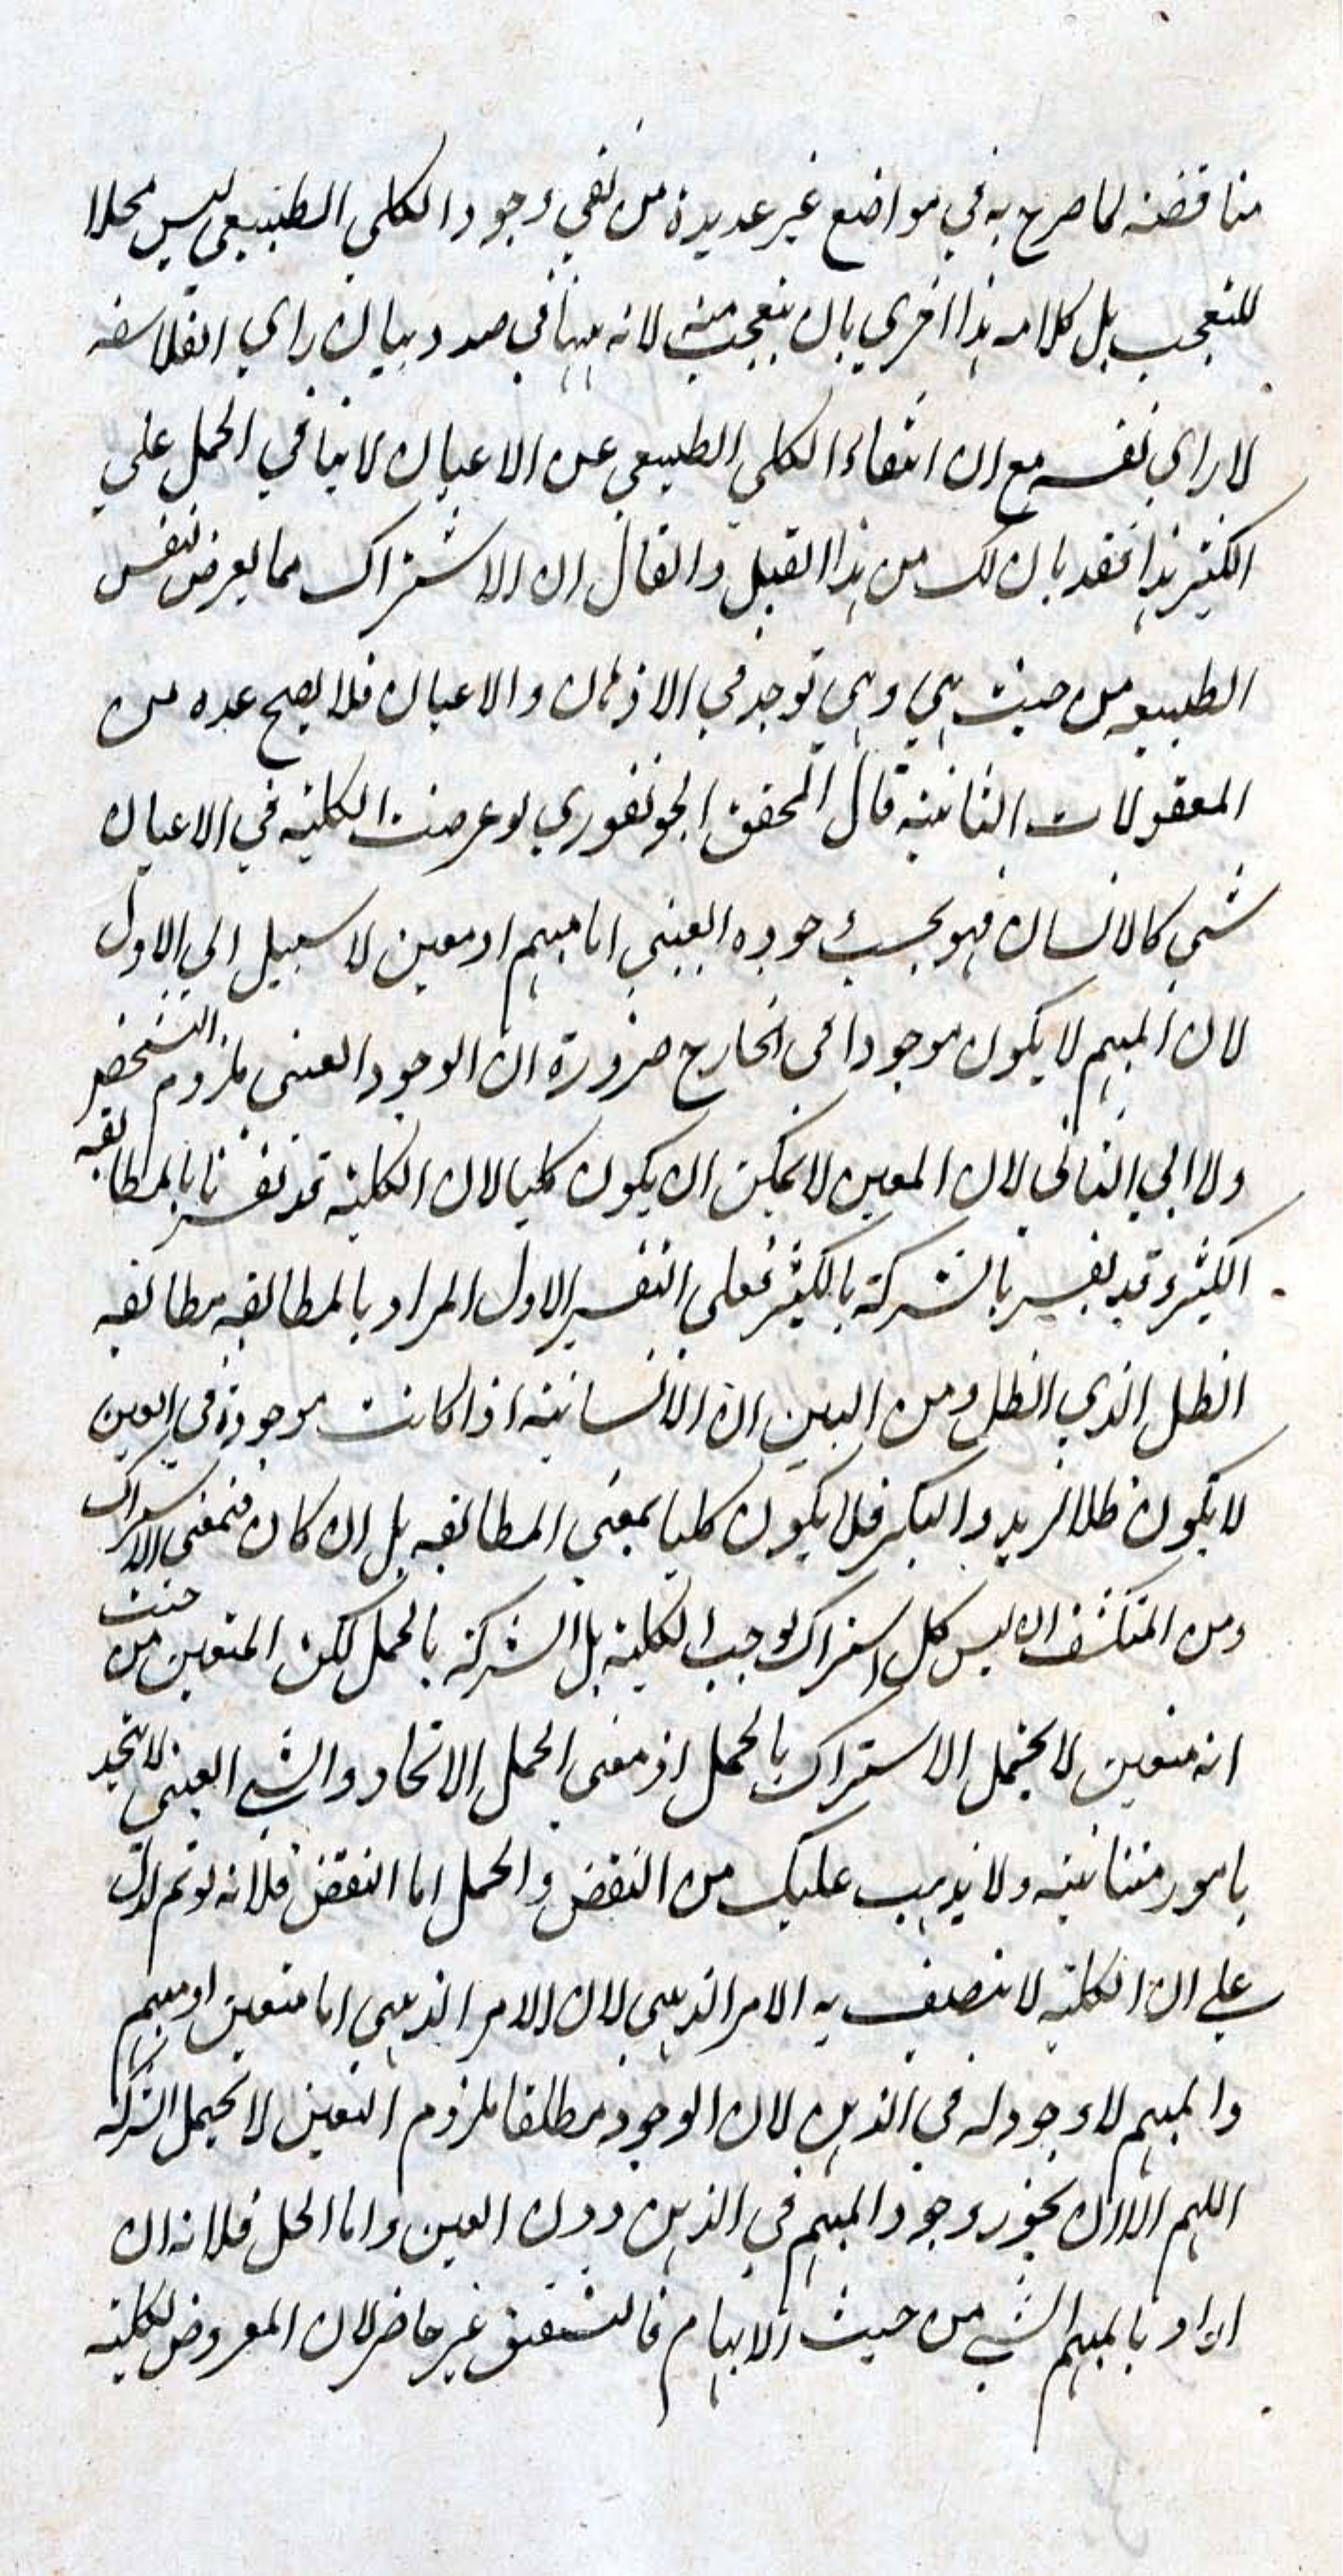 مناقضة لما صرح به في مواضع غير عديدة من نفي وجود الكلي الطبيعي ليس محلا
للتعجب بل كلامه هذا احرى بان يتعجب منه لانه ههنا في صدد بيان راي الفلاسفه
لا راي نفسه مع ان انتفاء الكلي الطبيعي عن الاعيان لا ينافي الحمل على
الكثير هذا فقد بان لك من هذا القبل والقال ان الاشتراك مما يعرض نفس
الطبيعه من حيث هي وهي توجد في الاذهان والاعيان فلا يصح عده من
المعقولات الثانية قال المحقق الجونفوري لو عرضت الكلية في الاعيان
شي كالانسان فهو بحسب وجوده العيني اما مبهم او معين لا سبيل الى الاول
لان المبهم لا يكون موجودا في الخارج ضرورة ان الوجود العيني ملزوم التشخص
ولا الي الثاني لان المعين لا يمكن ان يكون كليا لان الكلية قد تفسر بالمطابقه
الكثير وقد يفسر بالشركة بالكثير فعلى التفسير الاول المراد بالمطابقه مطابقه
الظل الذي الظل ومن البين ان الانسانية اذا كانت موجودة في العين
لا يكون ظلا لزيد والبكر فلا يكون كليا بمعنى المطابقه بل ان كان فبمعنى الاشتراك
ومن المنكشف ان ليس كل اشتراك يوجب الكلية بل الشركة بالحمل لكن المتعين من حيث
انه متعين لا يحتمل الاشتراك بالحمل اذ معنى الحمل الاتحاد والشي العيني لا يتحد
بامور متباينة ولا يذهب عليك من النقض والحمل اما النقض فلانه لو تم لدل
على ان الكلية لا يتصف به الامر الذهني لان الامر الذهني اما متعين او مبهم
والمبهم لا وجود له في الذهن لان الوجود مطلقا ملزوم التعين لا يحتمل الشركة
اللهم الا ان يجوز وجود المبهم في الذهن دون العين واما الحل فلانه ان
اراد بالمبهم الشي من حيث الابهام فالتشقيق غير حاضر لان المعروض للكلية